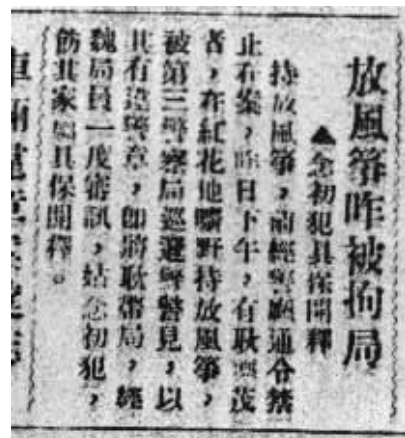 放風箏昨被拘局
▲念初犯具保開釋
持放風箏，前經警廳通令禁
止在案，昨日下午，有耿 茂
者，在紅花地曠野持放風箏，
被第三警察局巡邏 警見，以
其有違警章，即將耿帶局，經
魏局員一度審訊，姑念初犯，
飭其家屬具保開釋。
車輛